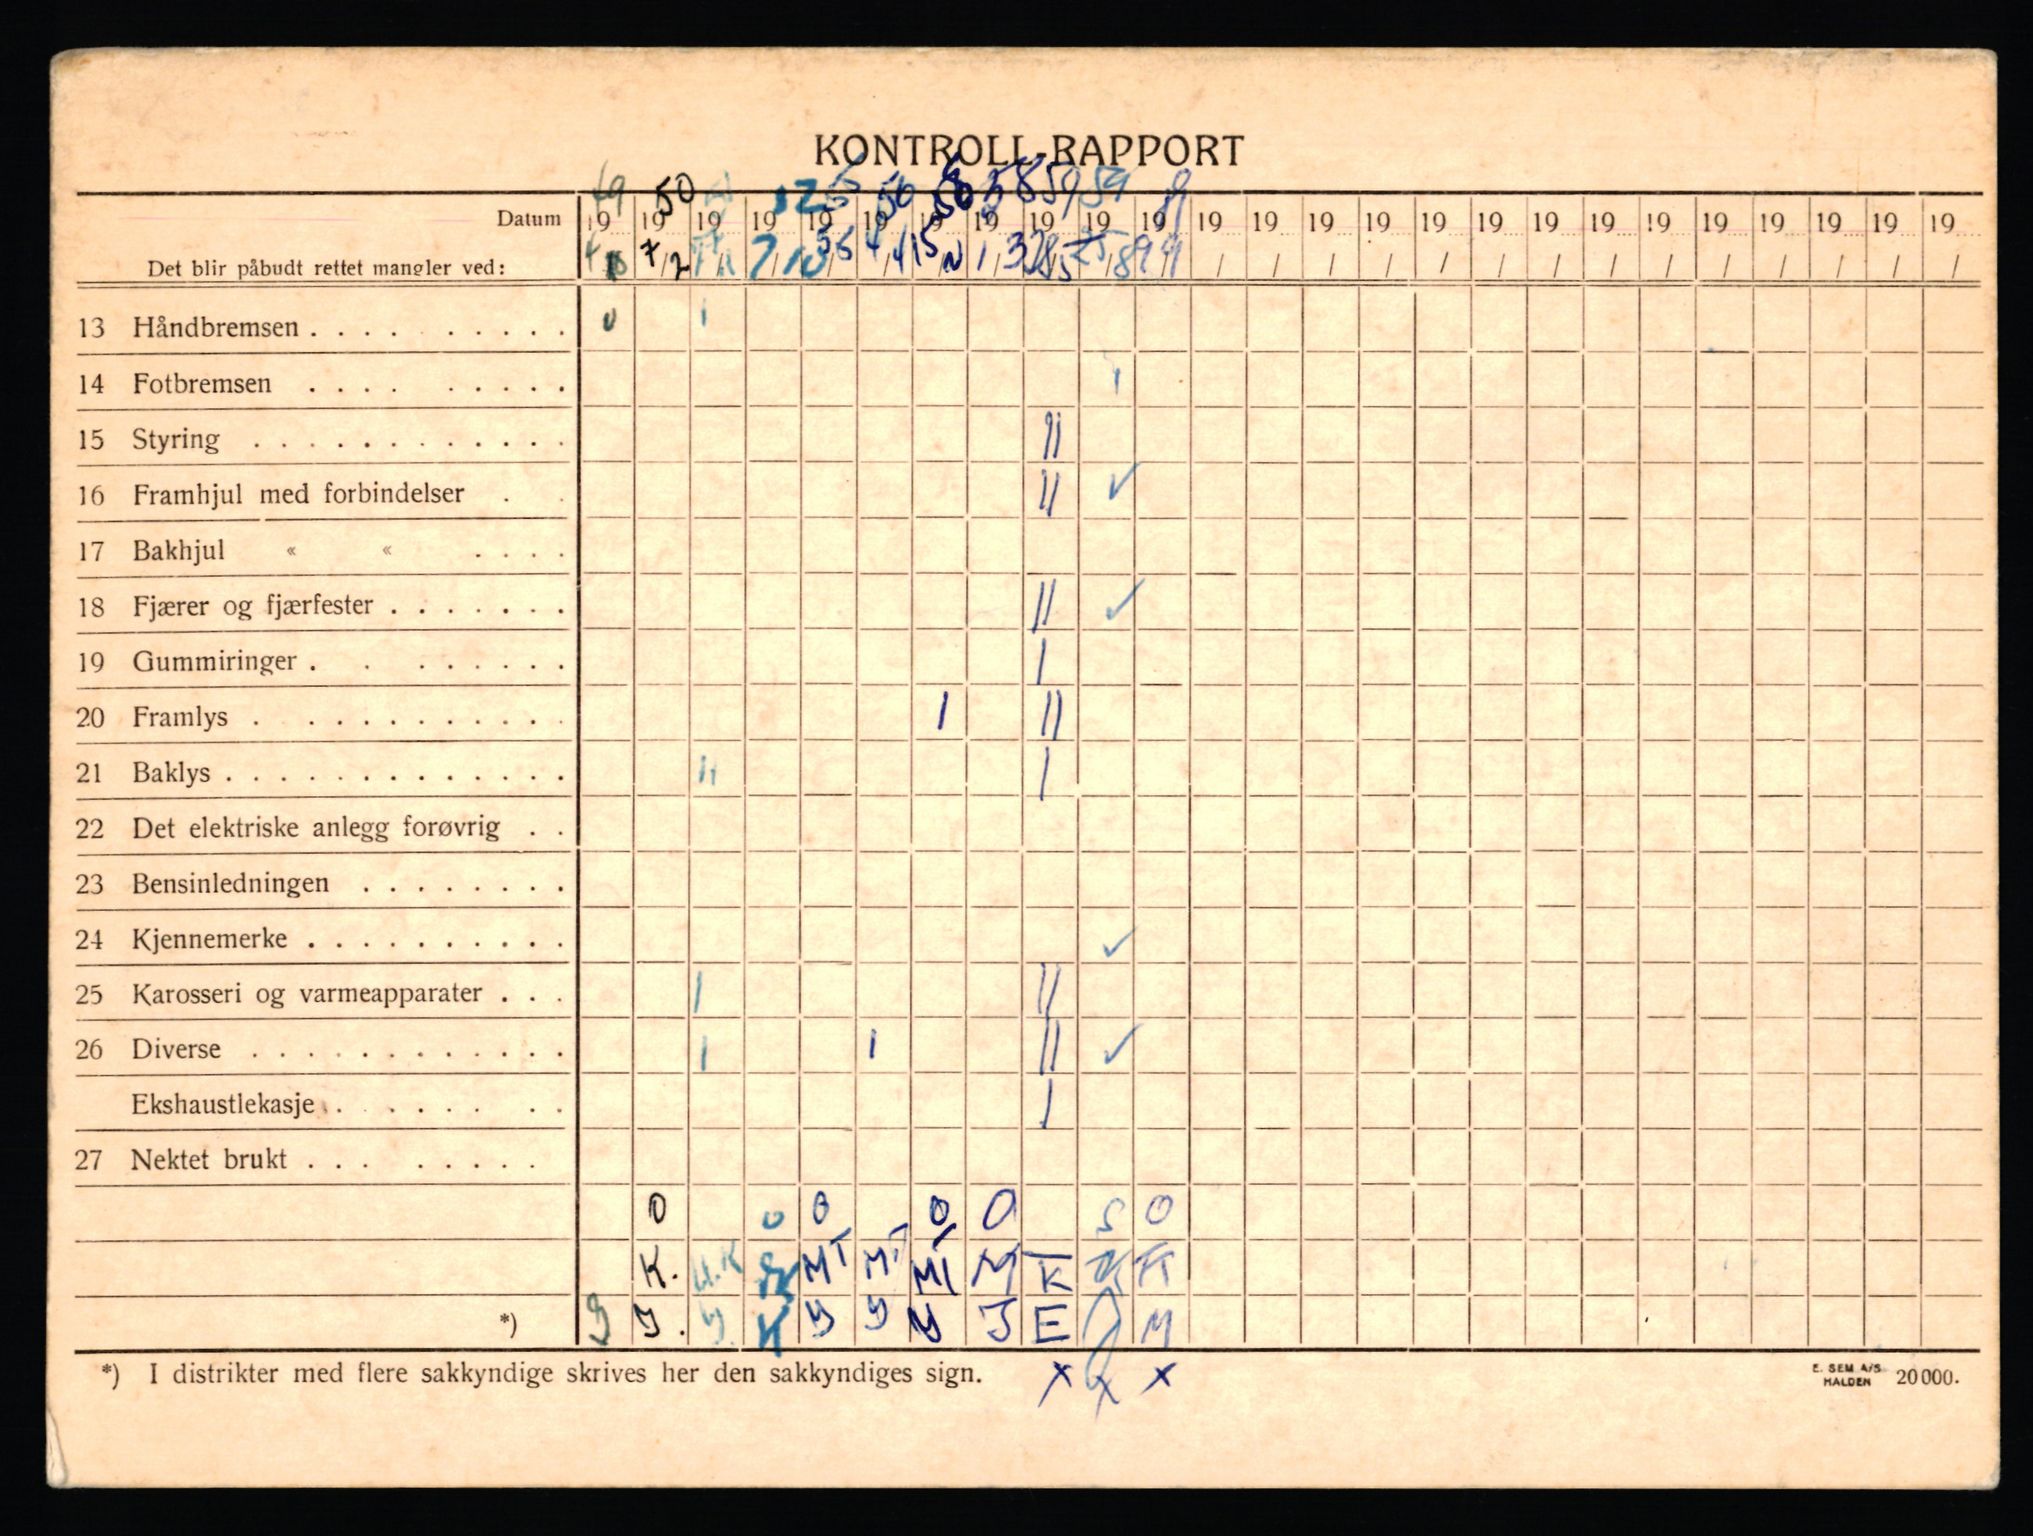 KONTROLL-RAPPORT
Datum 19 19 19 19 19 19 19 19 19 19 19 19 19 19 19 19 19 19 19 19 19 19 19 19 19
49 50 52 56 58 59 59
Det blir påbudt rettet mangler ved: / / / / / / / / / / / / / /
7/2
13 Håndbremsen . . . . . . . . . 0 1
14 Fotbremsen . . . . . . . . . 1
15 Styring . . . . . . . . . . . . 11
16 Framhjul med forbindelser . . 11 ✓
17 Bakhjul « « . . . .
18 Fjærer og fjærfester . . . . . . . 11 ✓
19 Gummiringer . . . . . . . . 1
20 Framlys . . . . . . . . . . . 1 11
21 Baklys . . . . . . . . . . . . . 11 1
22 Det elektriske anlegg forøvrig . .
23 Bensinledningen . . . . . . . .
24 Kjennemerke . . . . . . . . . . ✓
25 Karosseri og varmeapparater . . . 1 11
26 Diverse . . . . . . . . . . . . 1 1 11 ✓
Ekshaustlekasje . . . . . . . . 1
27 Nektet brukt . . . . . . . .
0 0 0 0 0 S 0
K. H.K MT MT MT M K K K
*) J J. J. K J J J J E M
*) I distrikter med flere sakkyndige skrives her den sakkyndiges sign. x x x
E. SEM A/S HALDEN 20000.